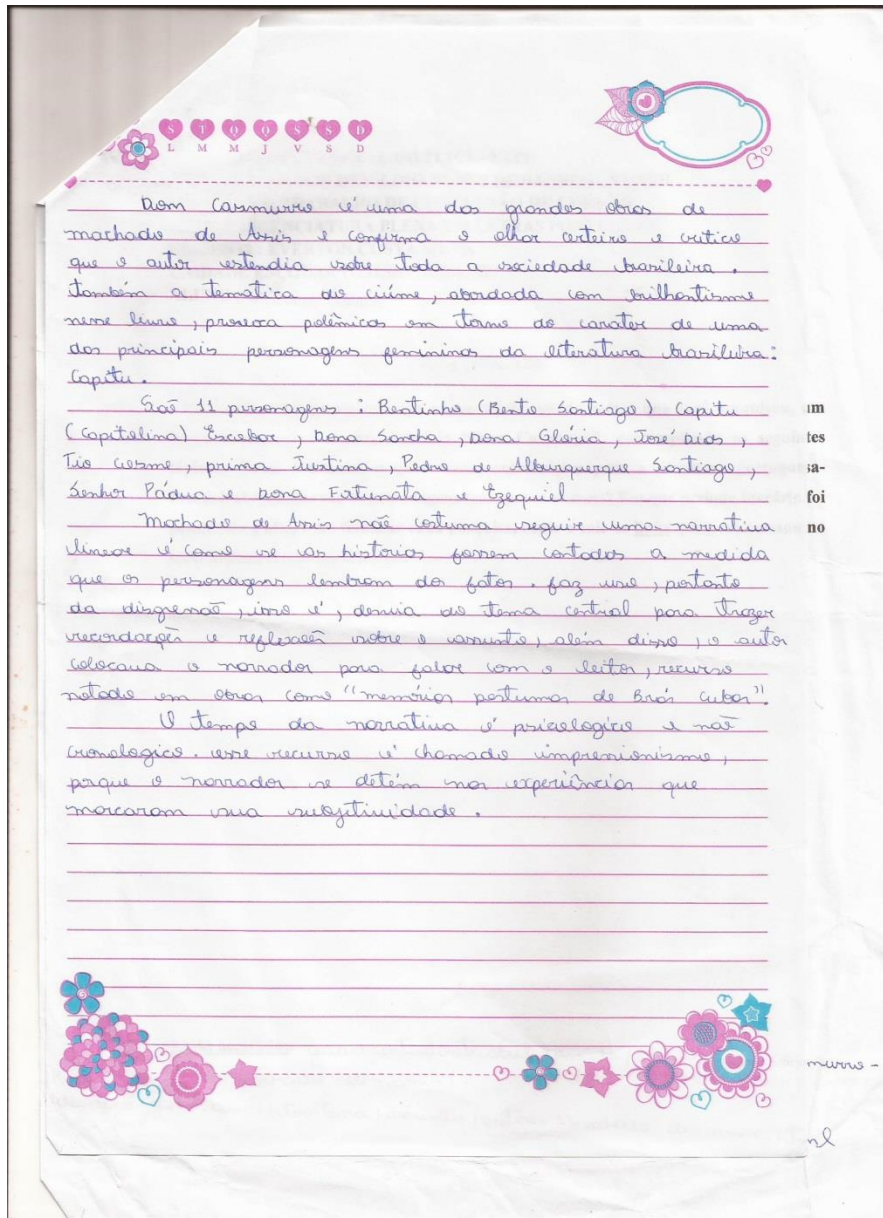 S T Q Q S S D
L M M J V S D
Dom Casmurro é uma das grandes obras de
machado de Assis e confirma o olhar certeiro e critico
que o autor estendia sobre toda a sociedade brasileira.
também a temática do ciúme, abordada com brilhantismo
nesse livro, provoca polêmicas em torno do carater de uma
das principais personagens femininas da literatura brasileira:
Capitu.
Saõ 11 personagens : Bentinho (Bento Santiago) Capitu
(Capitolina) Escobar, Dona Sancha, Dona Glória, José Dias,
Tio Cosme, prima Justina, Pedro de Alburquerque Santiago,
Senhor Pádua e Dona Fortunata e Ezequiel
Machado de Assis naõ costuma seguir uma narrativa
linear é como se as historias fossem contadas a medida
que os personagens lembram dos fatos. faz uso, portanto
da disgressaõ, isso é, desvia do tema central para trazer
recordaçoẽs e reflexoẽs sobre o assunto, além disso, o autor
colocava o narrador para falar com o leitor, recurso
notado em obras como "memórias postumas de Brás Cubas".
O tempo da narrativa é psicologico e naõ
cronologico. esse recurso é chamado impressionismo,
porque o narrador se detém nas experiências que
marcaram sua subjetividade.
um
tes
sa-
foi
no
murro -